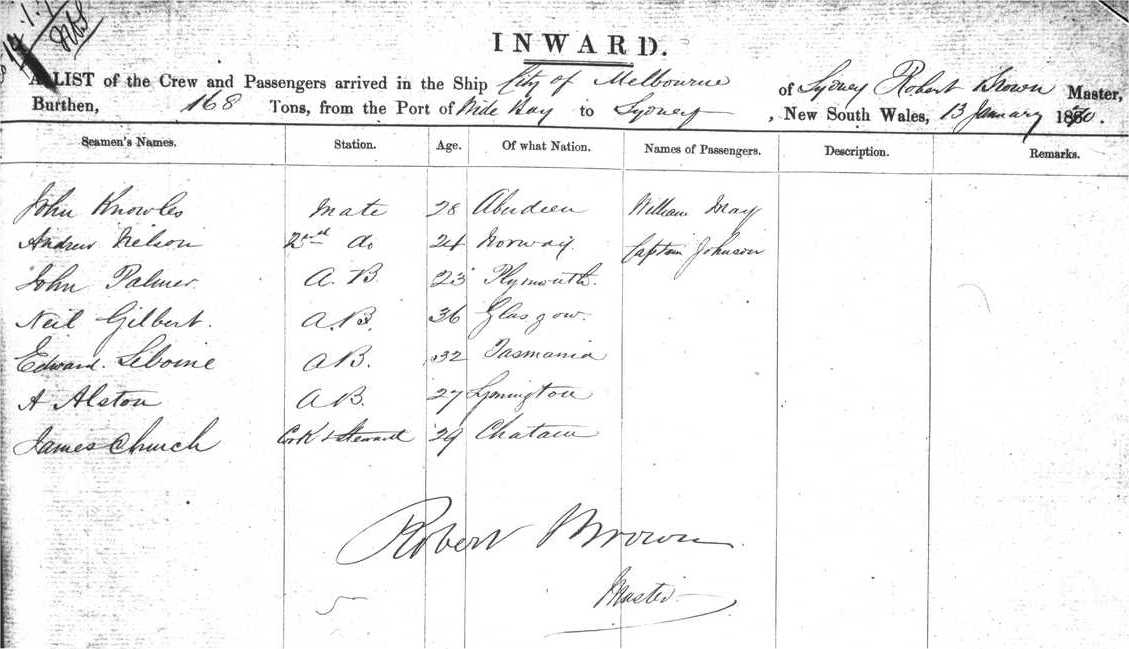 INWARD.
A LIST of the Crew and Passengers arrived in the Ship City of Melbourne of Sydney Robert Brown Master,
Burthen, 168 Tons, from the Port of Wide Bay to Sydney, New South Wales, 13 January 1870.
Seamen's Names. Station. Age. Of what Nation. Names of Passengers. Description. Remarks.
John Knowles Mate 28 Aberdeen William May
Andrew Nelson 2nd do 24 Norway Captain Johnson
John Palmer. A.B. 23 Plymouth.
Neil Gilbert. A.B. 36 Glasgow.
Edward. Leboine AB. 32 Tasmania
A Alston AB. 27 Lymington
James Church Cook & Steward 29 Chatam
Robert Brown
Master